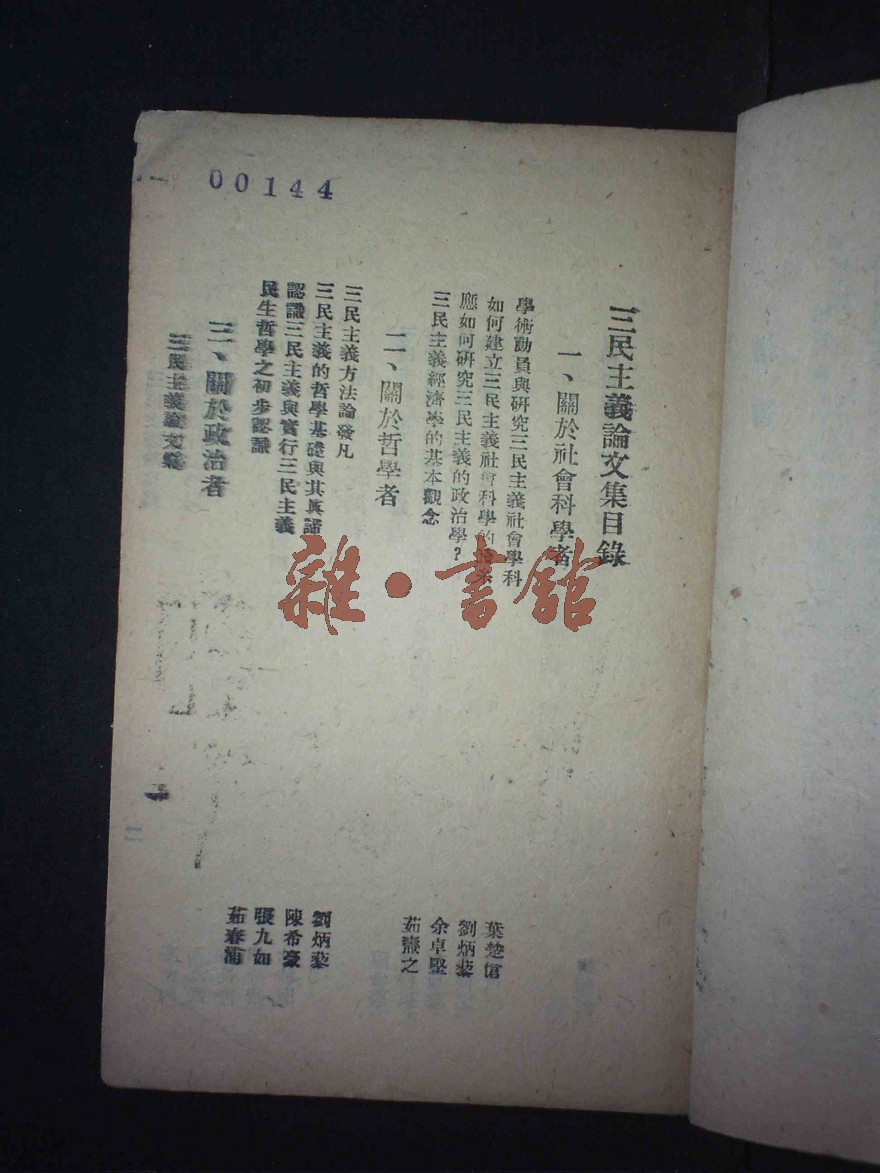 00144
三民主義論文集目錄
一、關於社會科學者
學術動員與研究三民主義社會學科 葉楚傖
如何建立三民主義社會科學的體系 劉炳藜
應如何研究三民主義的政治學？ 余卓堅
三民主義經濟學的基本觀念 茹
二、關於哲學者
三民主義方法論發凡 劉炳藜
三民主義的哲學基礎與其眞諦 陳希豪
認識三民主義與實行三民主義 張九如
民生哲學之初步認識 茹春浦
三、關於政治者
三民主義論文集
雜·書館